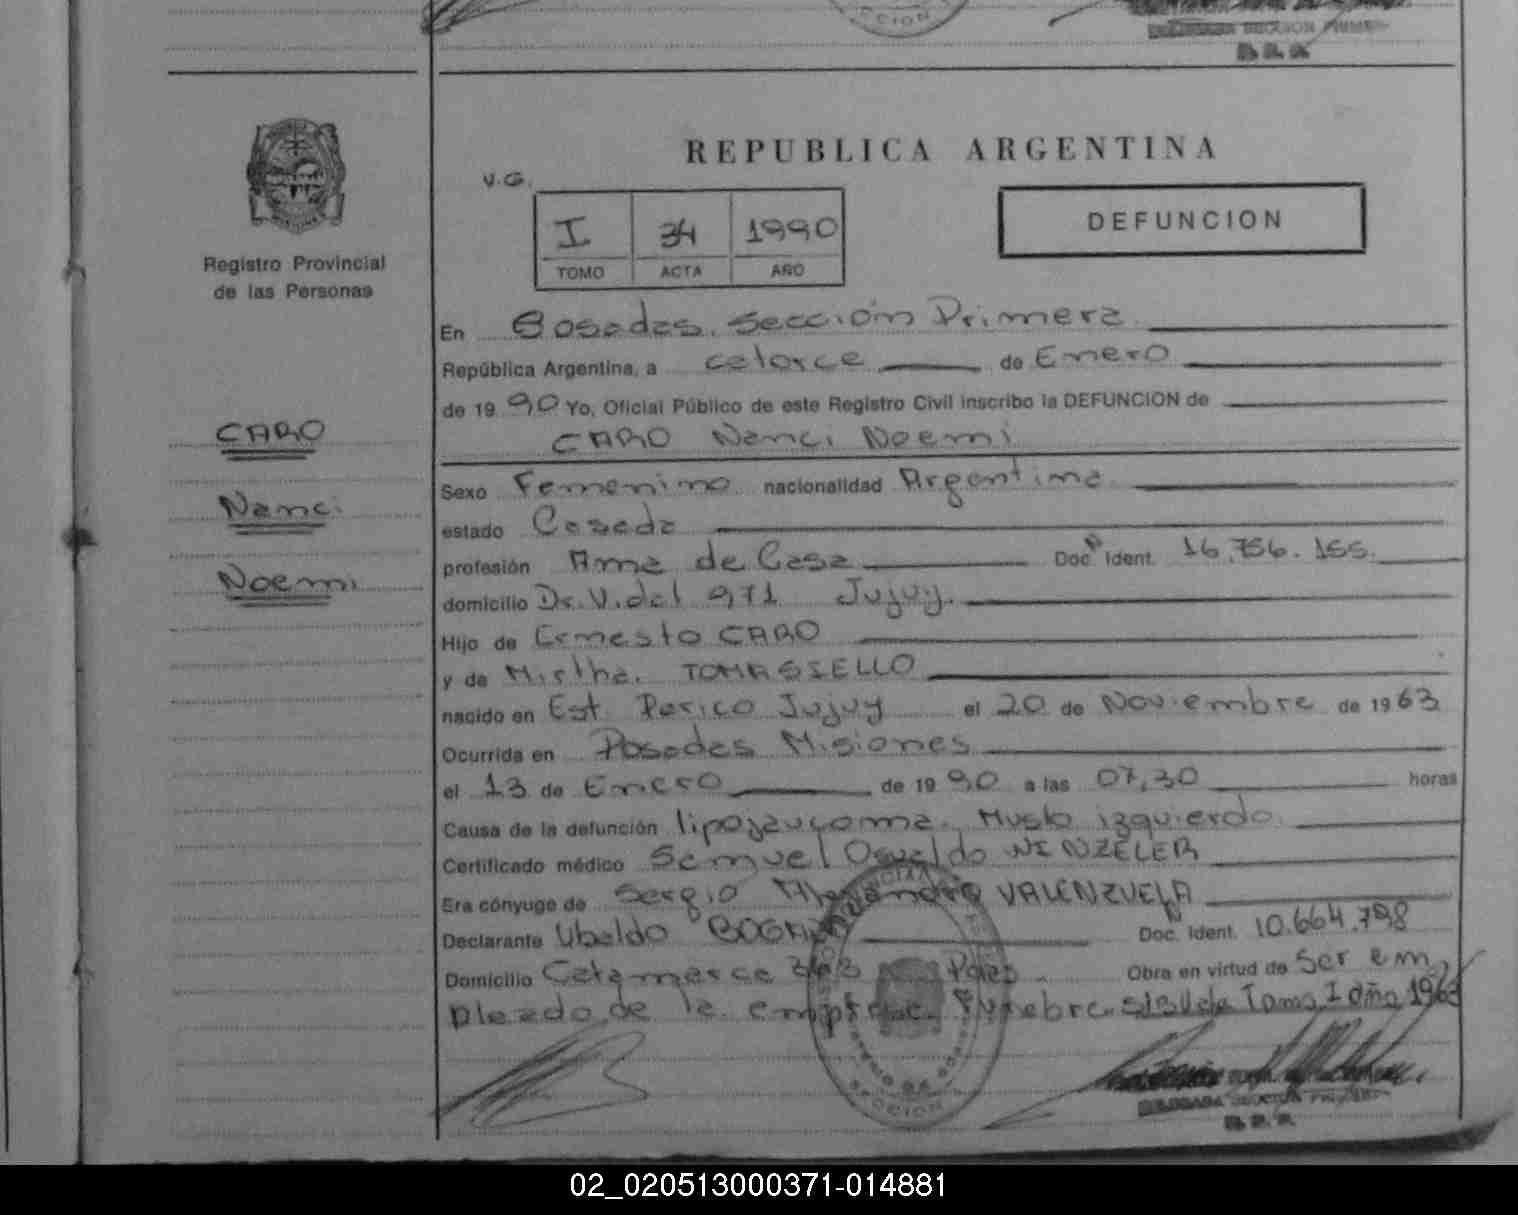 CCION
DELEGADA SECCION PRIMERA
REPUBLICA ARGENTINA
V.G.
I 34 1990
TOMO ACTA AÑO
DEFUNCION
Registro Provincial
de las Personas
CARO
Nanci
Noemi
En Posadas. Sección Primera
República Argentina, a catorce de Enero
de 1990 Yo, Oficial Público de este Registro Civil inscribo la DEFUNCION de
CARO Nanci Noemi
Sexo Femenino nacionalidad Argentina
estado Casada
profesión Ama de Casa Doc. Ident. 16.756.155.
domicilio Dr. Vidal 971 Jujuy.
Hijo de Ernesto CARO
y de Mirtha. TOMASIELLO
nacido en Est. Perico Jujuy el 20 de Noviembre de 1963
Ocurrida en Posadas Misiones
el 13 de Enero de 1990 a las 07,30 horas
Causa de la defunción Muslo izquierdo
Certificado médico Samuel Osvaldo
Era cónyuge de Sergio Alejandro VALENZUELA
Declarante Ubaldo Doc. Ident. 10.664.798
Domicilio Catamarca Pdas. Obra en virtud de Ser em
pleado de la empresa Funebre. Tomo I año 1963
SECCION
DELEGADA SECCION PRIMERA
02_020513000371-014881